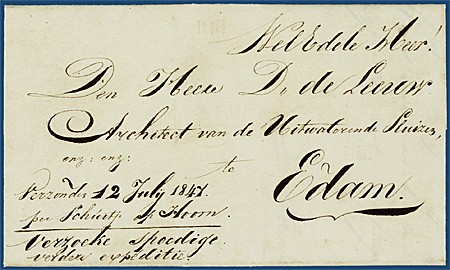 WelEdele Heer!
Den Heere D. de Leeuw
Architect van de Uitwaterende Sluizen,
enz: enz:
te
Edam.
Verzonden 12 July 1841.
per Schuitje op Hoorn.
Verzoeke spoedige
verder expeditie